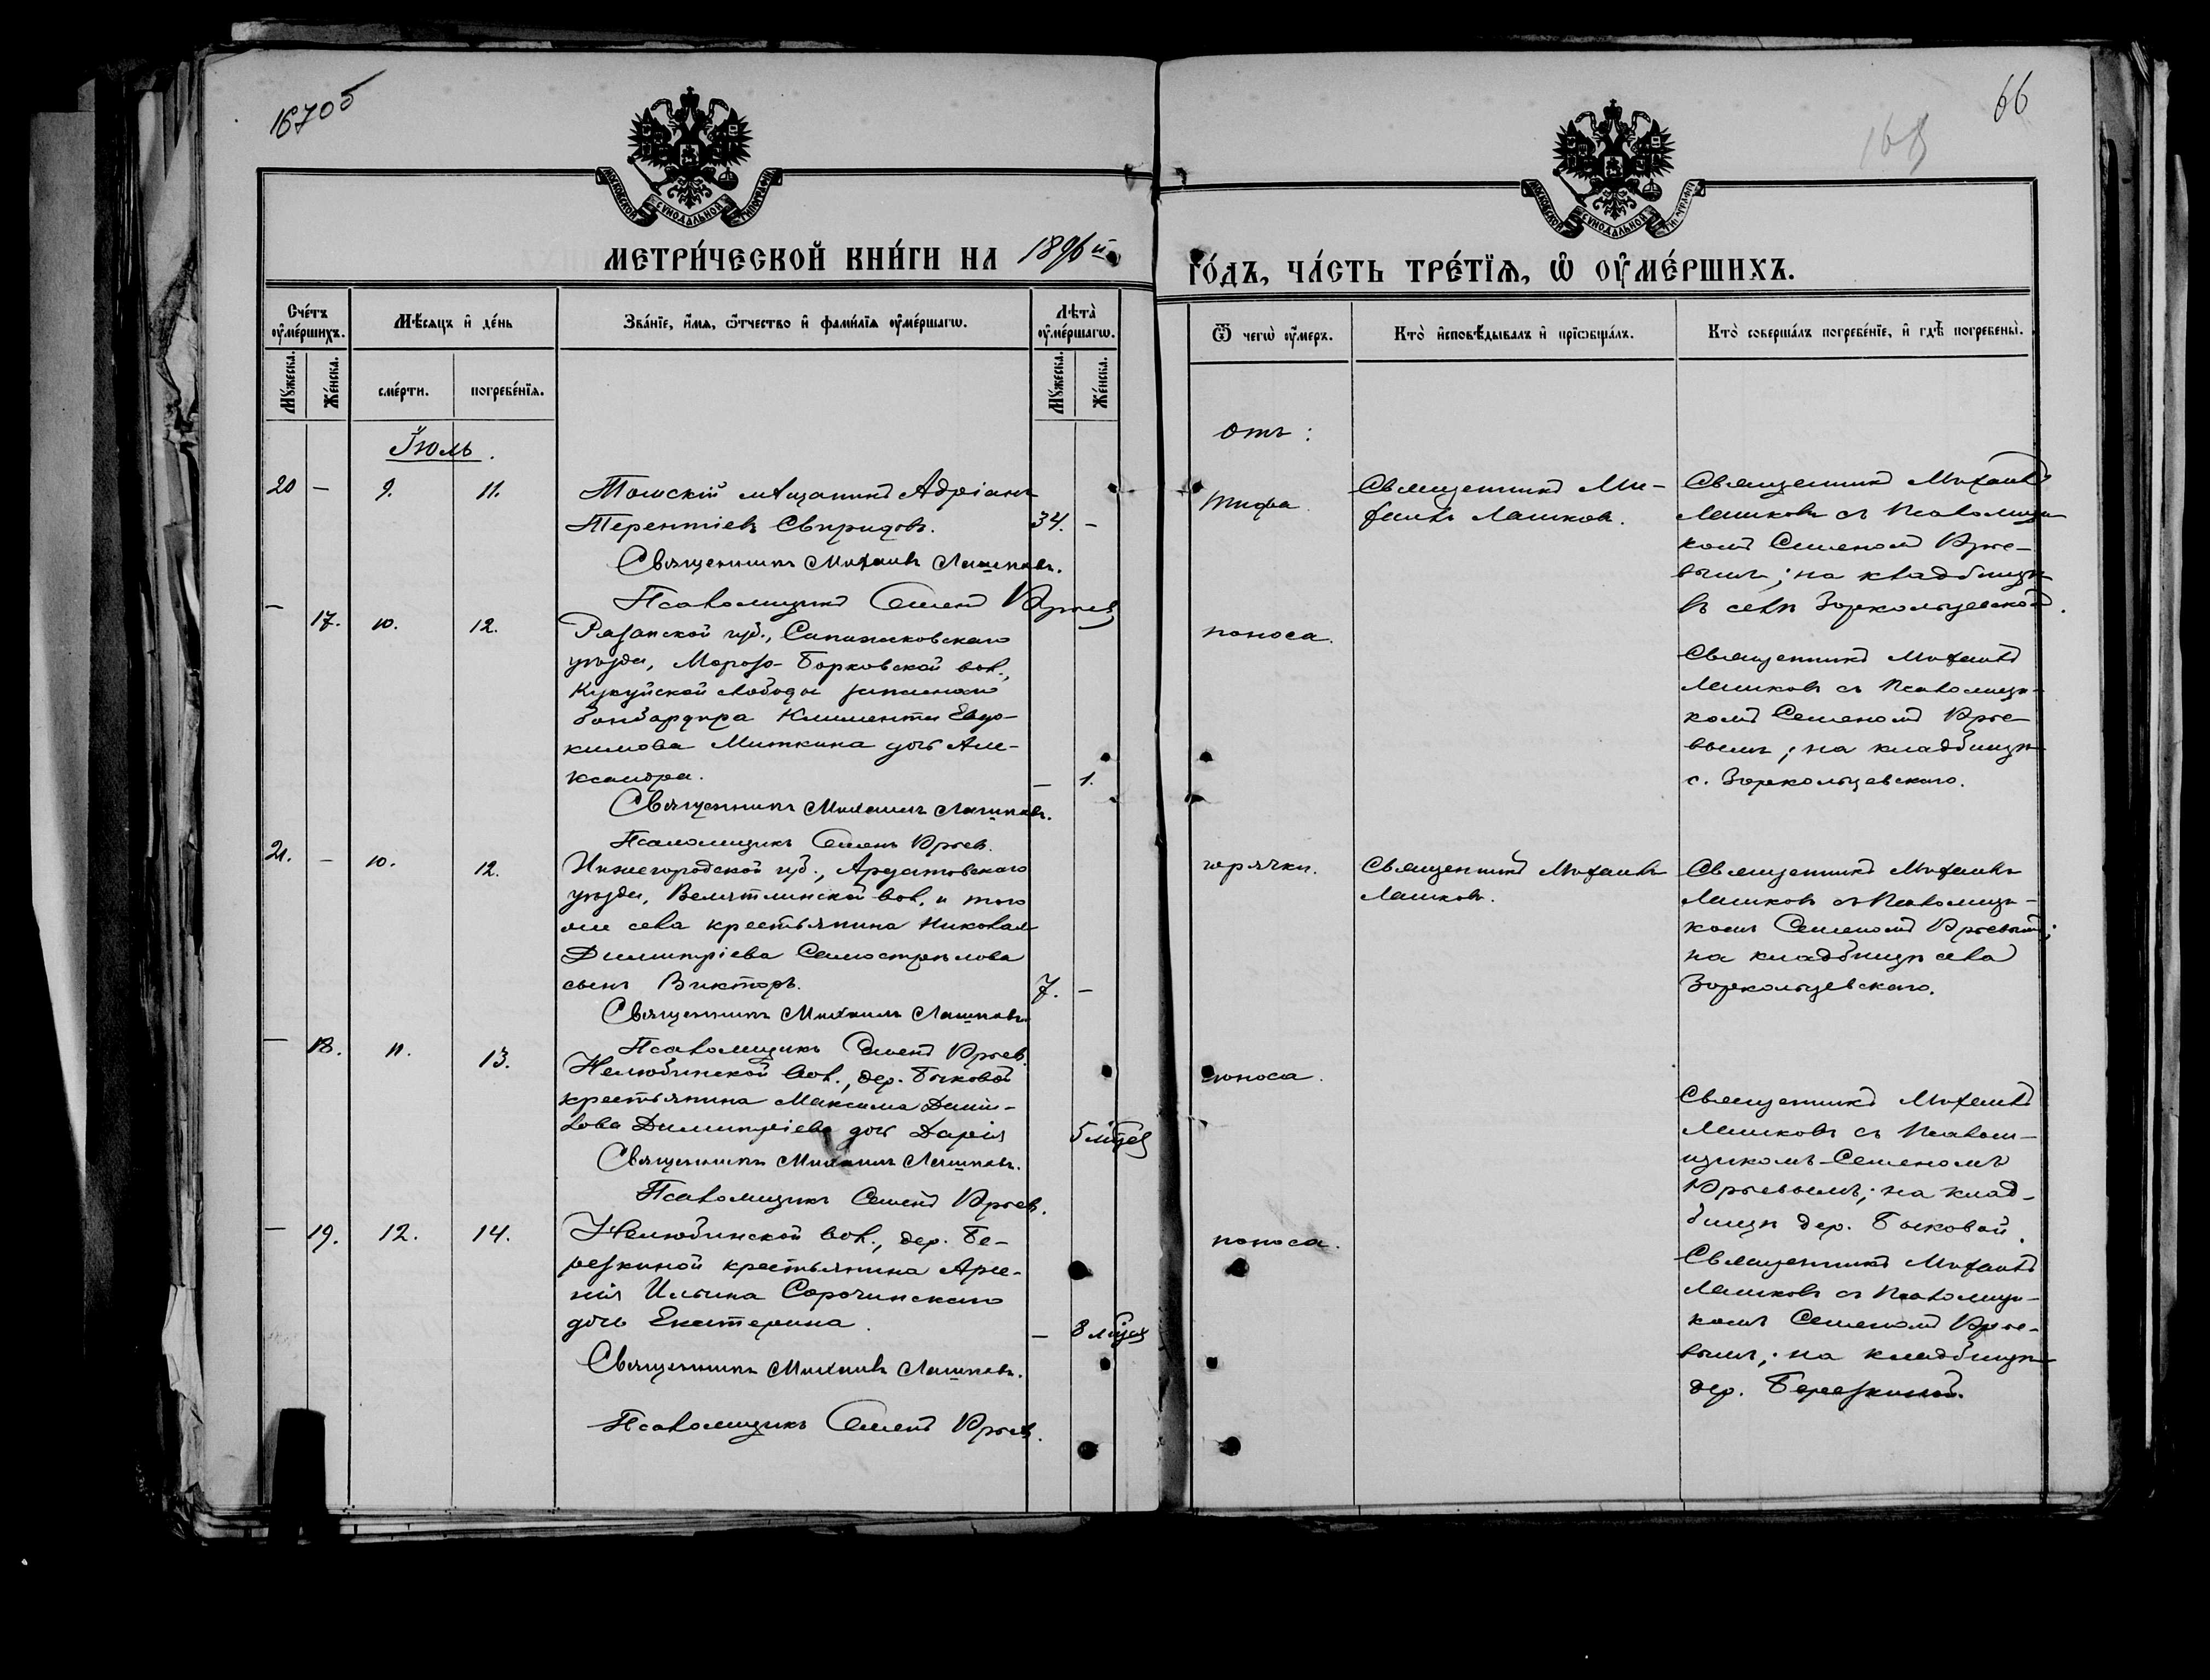 1670б
66
168
МОСКОВСКОЙ СУНОДАЛЬНОЙ ТИПОГРАФІИ
МОСКОВСКОЙ СУНОДАЛЬНОЙ ТИПОГРАФІИ
МЕТРИ́ЧЕСКОЙ КНИ́ГИ НА 1896й
ГО́ДЪ, ЧА́СТЬ ТРЕ́ТІѦ, Ѡ҆ ОУ҆МЕ́РШИХЪ.
Сче́тъ оу҆ме́ршихъ.
Мѣ́сѧцъ и҆ де́нь
Зва́нїе, и҆́мѧ, ѻ҆́тчество и҆ фами́лїѧ оу҆ме́ршагѡ.
Лѣта̀ оу҆ме́ршагѡ.
Ѿ чегѡ̀ оу҆́меръ.
Кто̀ и҆сповѣ́дывалъ и҆ прїѡбща́лъ.
Кто̀ соверша́лъ погребе́нїе, и҆ гдѣ̀ погребены̀.
Мꙋ́жеска.
Же́нска.
сме́рти.
погребе́нїѧ.
Мꙋ́жеска.
Же́нска.
Іюль.
Отъ:
20 — 9. 11.
Томскій мѣщанинъ Адріанъ
Терентіевъ Свиридовъ. 34. —
Священникъ Михаилъ Лашковъ.
Псаломщикъ Семенъ Юрьев
тифа.
Священникъ Ми-
хаилъ Лашков.
Священникъ Михаилъ
Лашковъ съ Псаломщи-
комъ Семеномъ Юрье-
вымъ; на кладбищѣ
въ селѣ Зоркольцевском.
— 17. 10. 12.
Рязанской губ., Сапожковскаго
уѣзда, Морозо-Борковской вол.,
Кукуйской слободы запаснаго
бомбардира Климента Евдо-
кимова Миткина дочь Але-
ксандра. — 1.
Священникъ Михаилъ Лашковъ.
Псаломщикъ Семенъ Юрьев.
поноса.
Священникъ Михаилъ
Лашковъ съ Псаломщи-
комъ Семеномъ Юрье-
вымъ; на кладбищѣ
с. Зоркольцевскаго.
21. — 10. 12.
Нижегородской губ., Ардатовскаго
уѣзда, Велетминской вол. и того
же села крестьянина Николая
Димитріева Самострѣлова
сынъ Викторъ. 7. —
Священникъ Михаилъ Лашковъ
Псаломщикъ Семенъ Юрьев.
горячки.
Священникъ Михаилъ
Лашковъ.
Священникъ Михаилъ
Лашковъ съ Псаломщи-
комъ Семеномъ Юрьевымъ;
на кладбищѣ села
Зоркольцевскаго.
— 18. 11. 13.
Нелюбинской вол., дер. Быковой
крестьянина Максима Дани-
лова Димитріева дочь Дарія 5 мѣсяц
Священникъ Михаилъ Лашковъ.
Псаломщикъ Семенъ Юрьев.
поноса.
Священникъ Михаилъ
Лашковъ съ Псалом-
щикомъ Семеномъ
Юрьевымъ; на клад-
бищѣ дер. Быковой.
— 19. 12. 14.
Нелюбинской вол., дер. Бе-
резкиной крестьянина Арсе-
нія Ильина Сорочинскаго
дочь Екатерина. — 8 мѣсяц
Священникъ Михаилъ Лашковъ.
Псаломщикъ Семенъ Юрьев.
поноса.
Священникъ Михаилъ
Лашковъ съ Псаломщи-
комъ Семеномъ Юрье-
вымъ; на кладбищѣ
дер. Березкиной.